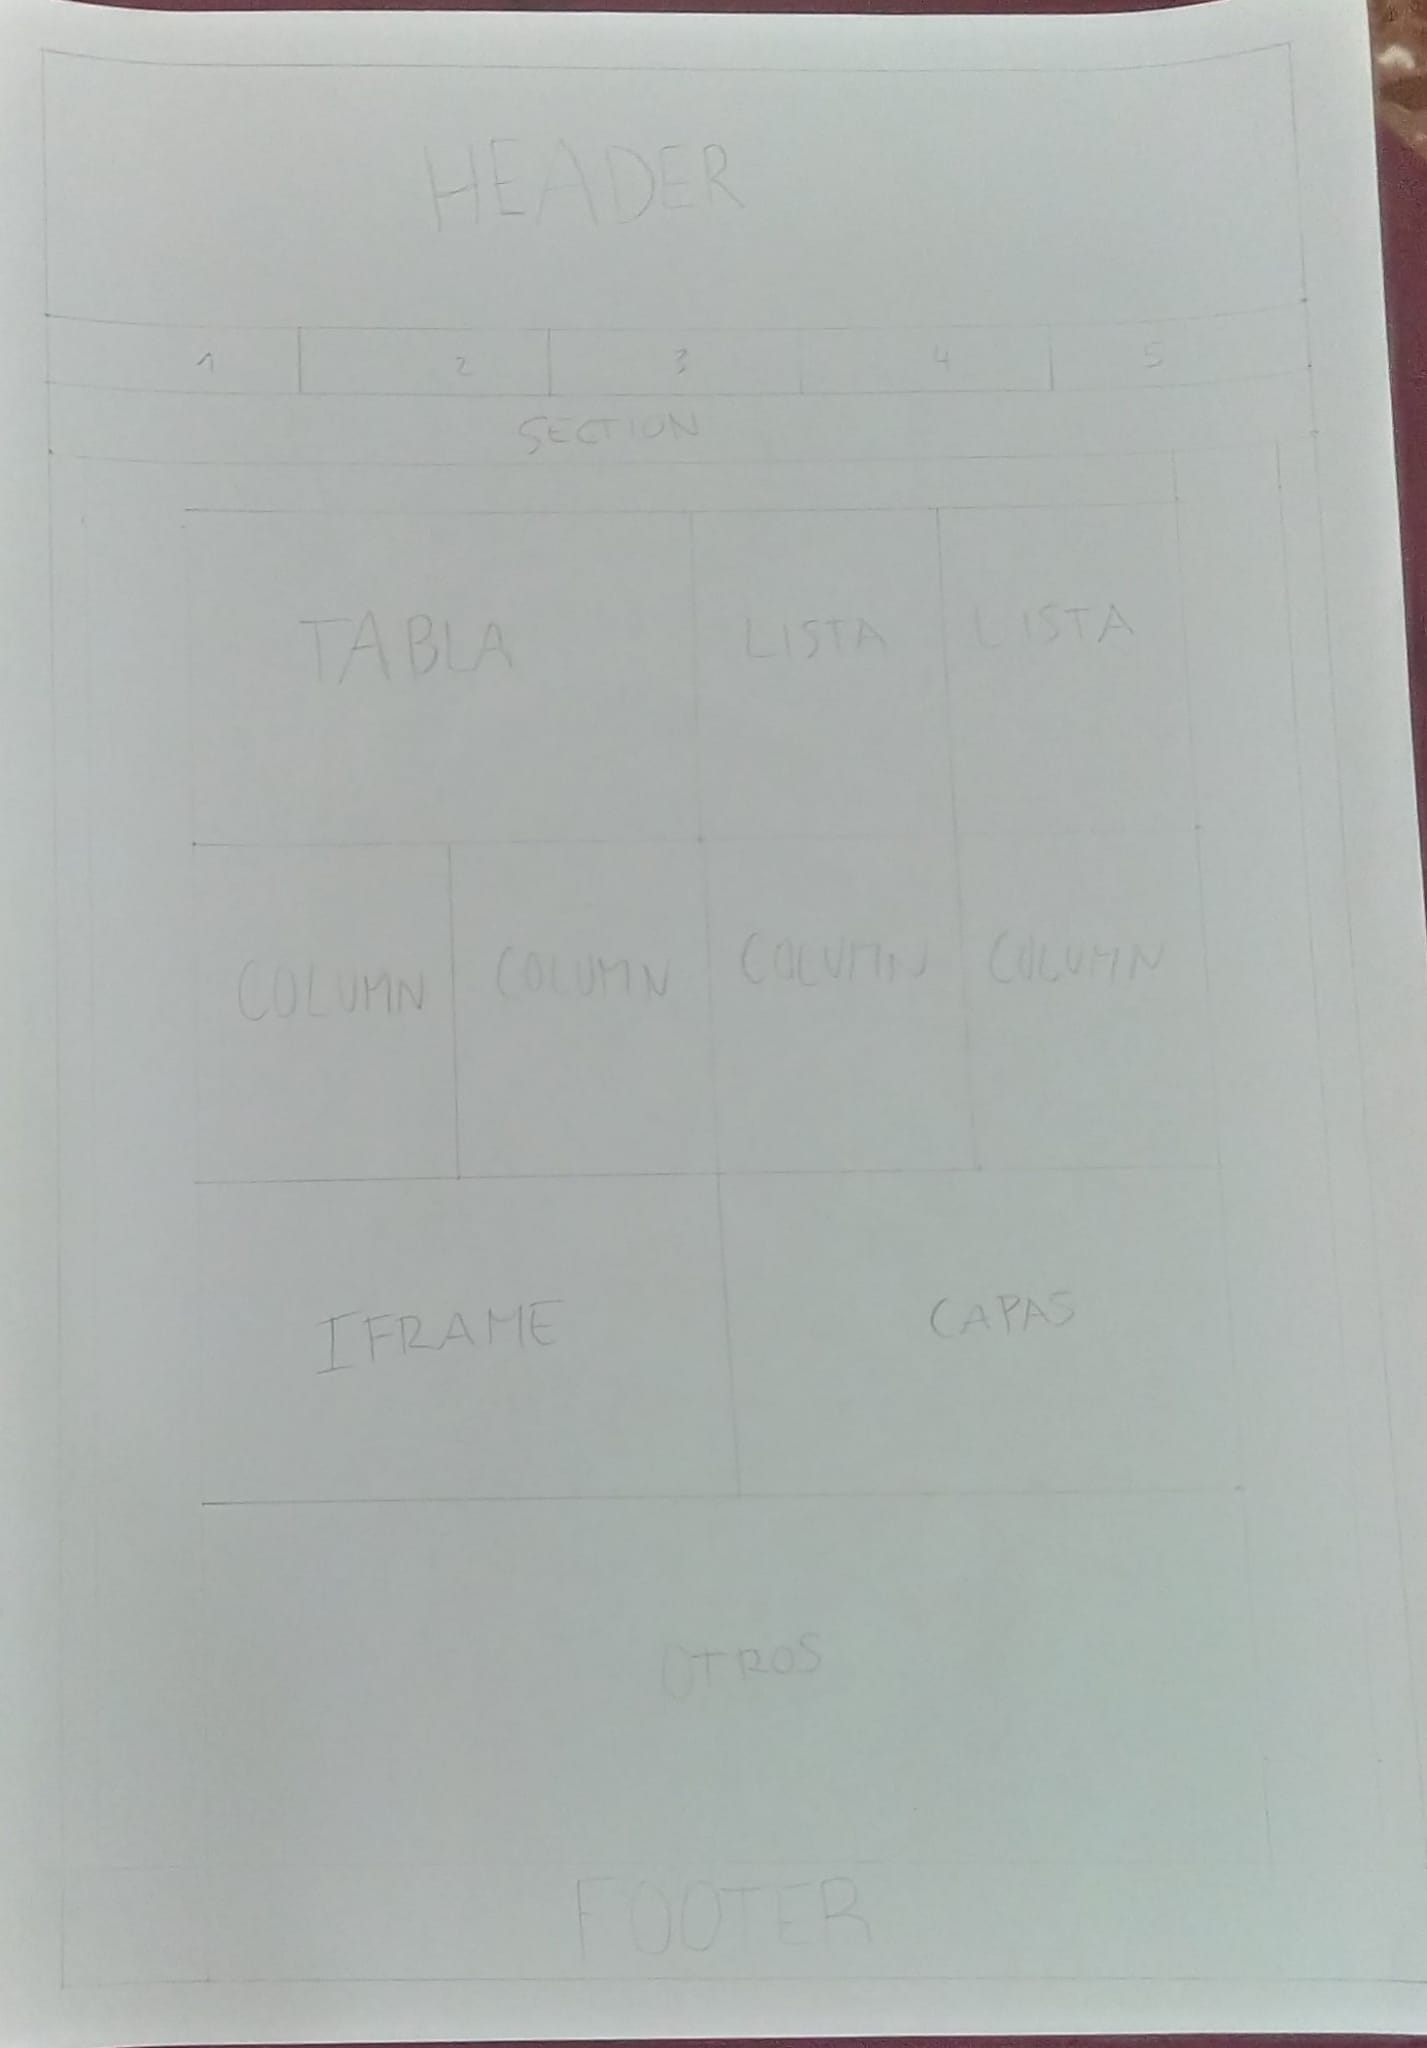 HEADER
1 2 3 4 5
SECTION
TABLA LISTA LISTA
COLUMN COLUMN COLUMN COLUMN
IFRAME CAPAS
OTROS
FOOTER